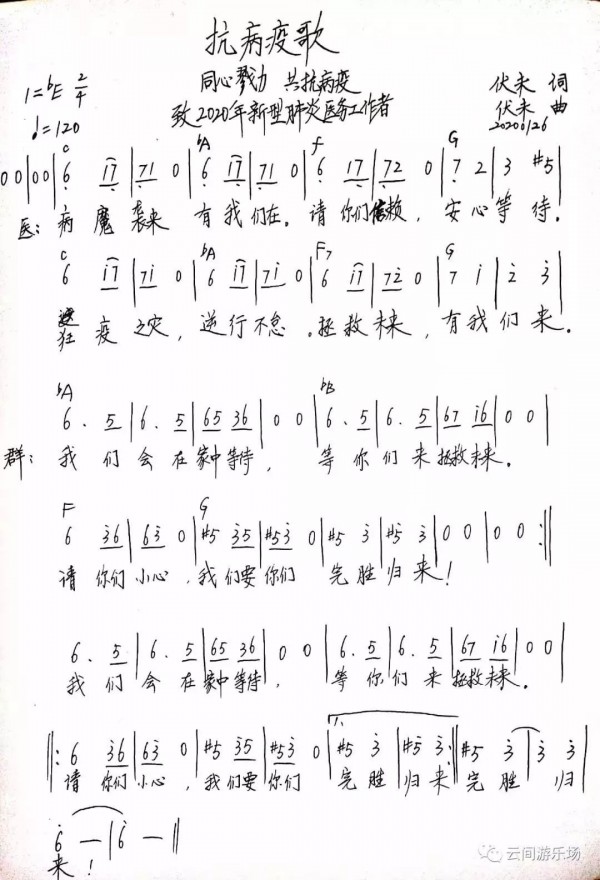 抗病疫歌
同心戮力 共抗病疫
致2020年新型肺炎医务工作者
伏未 词
伏未 曲
20200126
1=bE 2/4
♩=120
C bA F G
00|00|6 17|71 0|6 17|71 0|6 17|72 0|7 2|3 #5|
医: 病 魔 袭来 有我们在。请你们信赖,安心等待.
C bA F7 G
6 17|71 0|6 17|71 0|6 17|72 0|7 1|2 3|
狂 疫之灾,逆行不怠.拯救未来,有我们来.
bA bB
6. 5|6. 5|65 36|0 0|6. 5|6. 5|67 16|0 0|
群: 我们会在家中等待, 等你们来拯救未来.
F G
6 36|63 0|#5 35|#53 0|#5 3|#5 3|00|00:||
请你们小心,我们要你们 完胜归来!
6. 5|6. 5|65 36|0 0|6. 5|6. 5|67 16|0 0|
我们会在家中等待, 等你们来拯救未来.
||:6 36|63 0|#5 35|#53 0|1.#5 3|#5 3:||#5 3|3 3|
请你们小心,我们要你们 完胜归来 完胜 归
6 —|6 —||
来!
云间游乐场